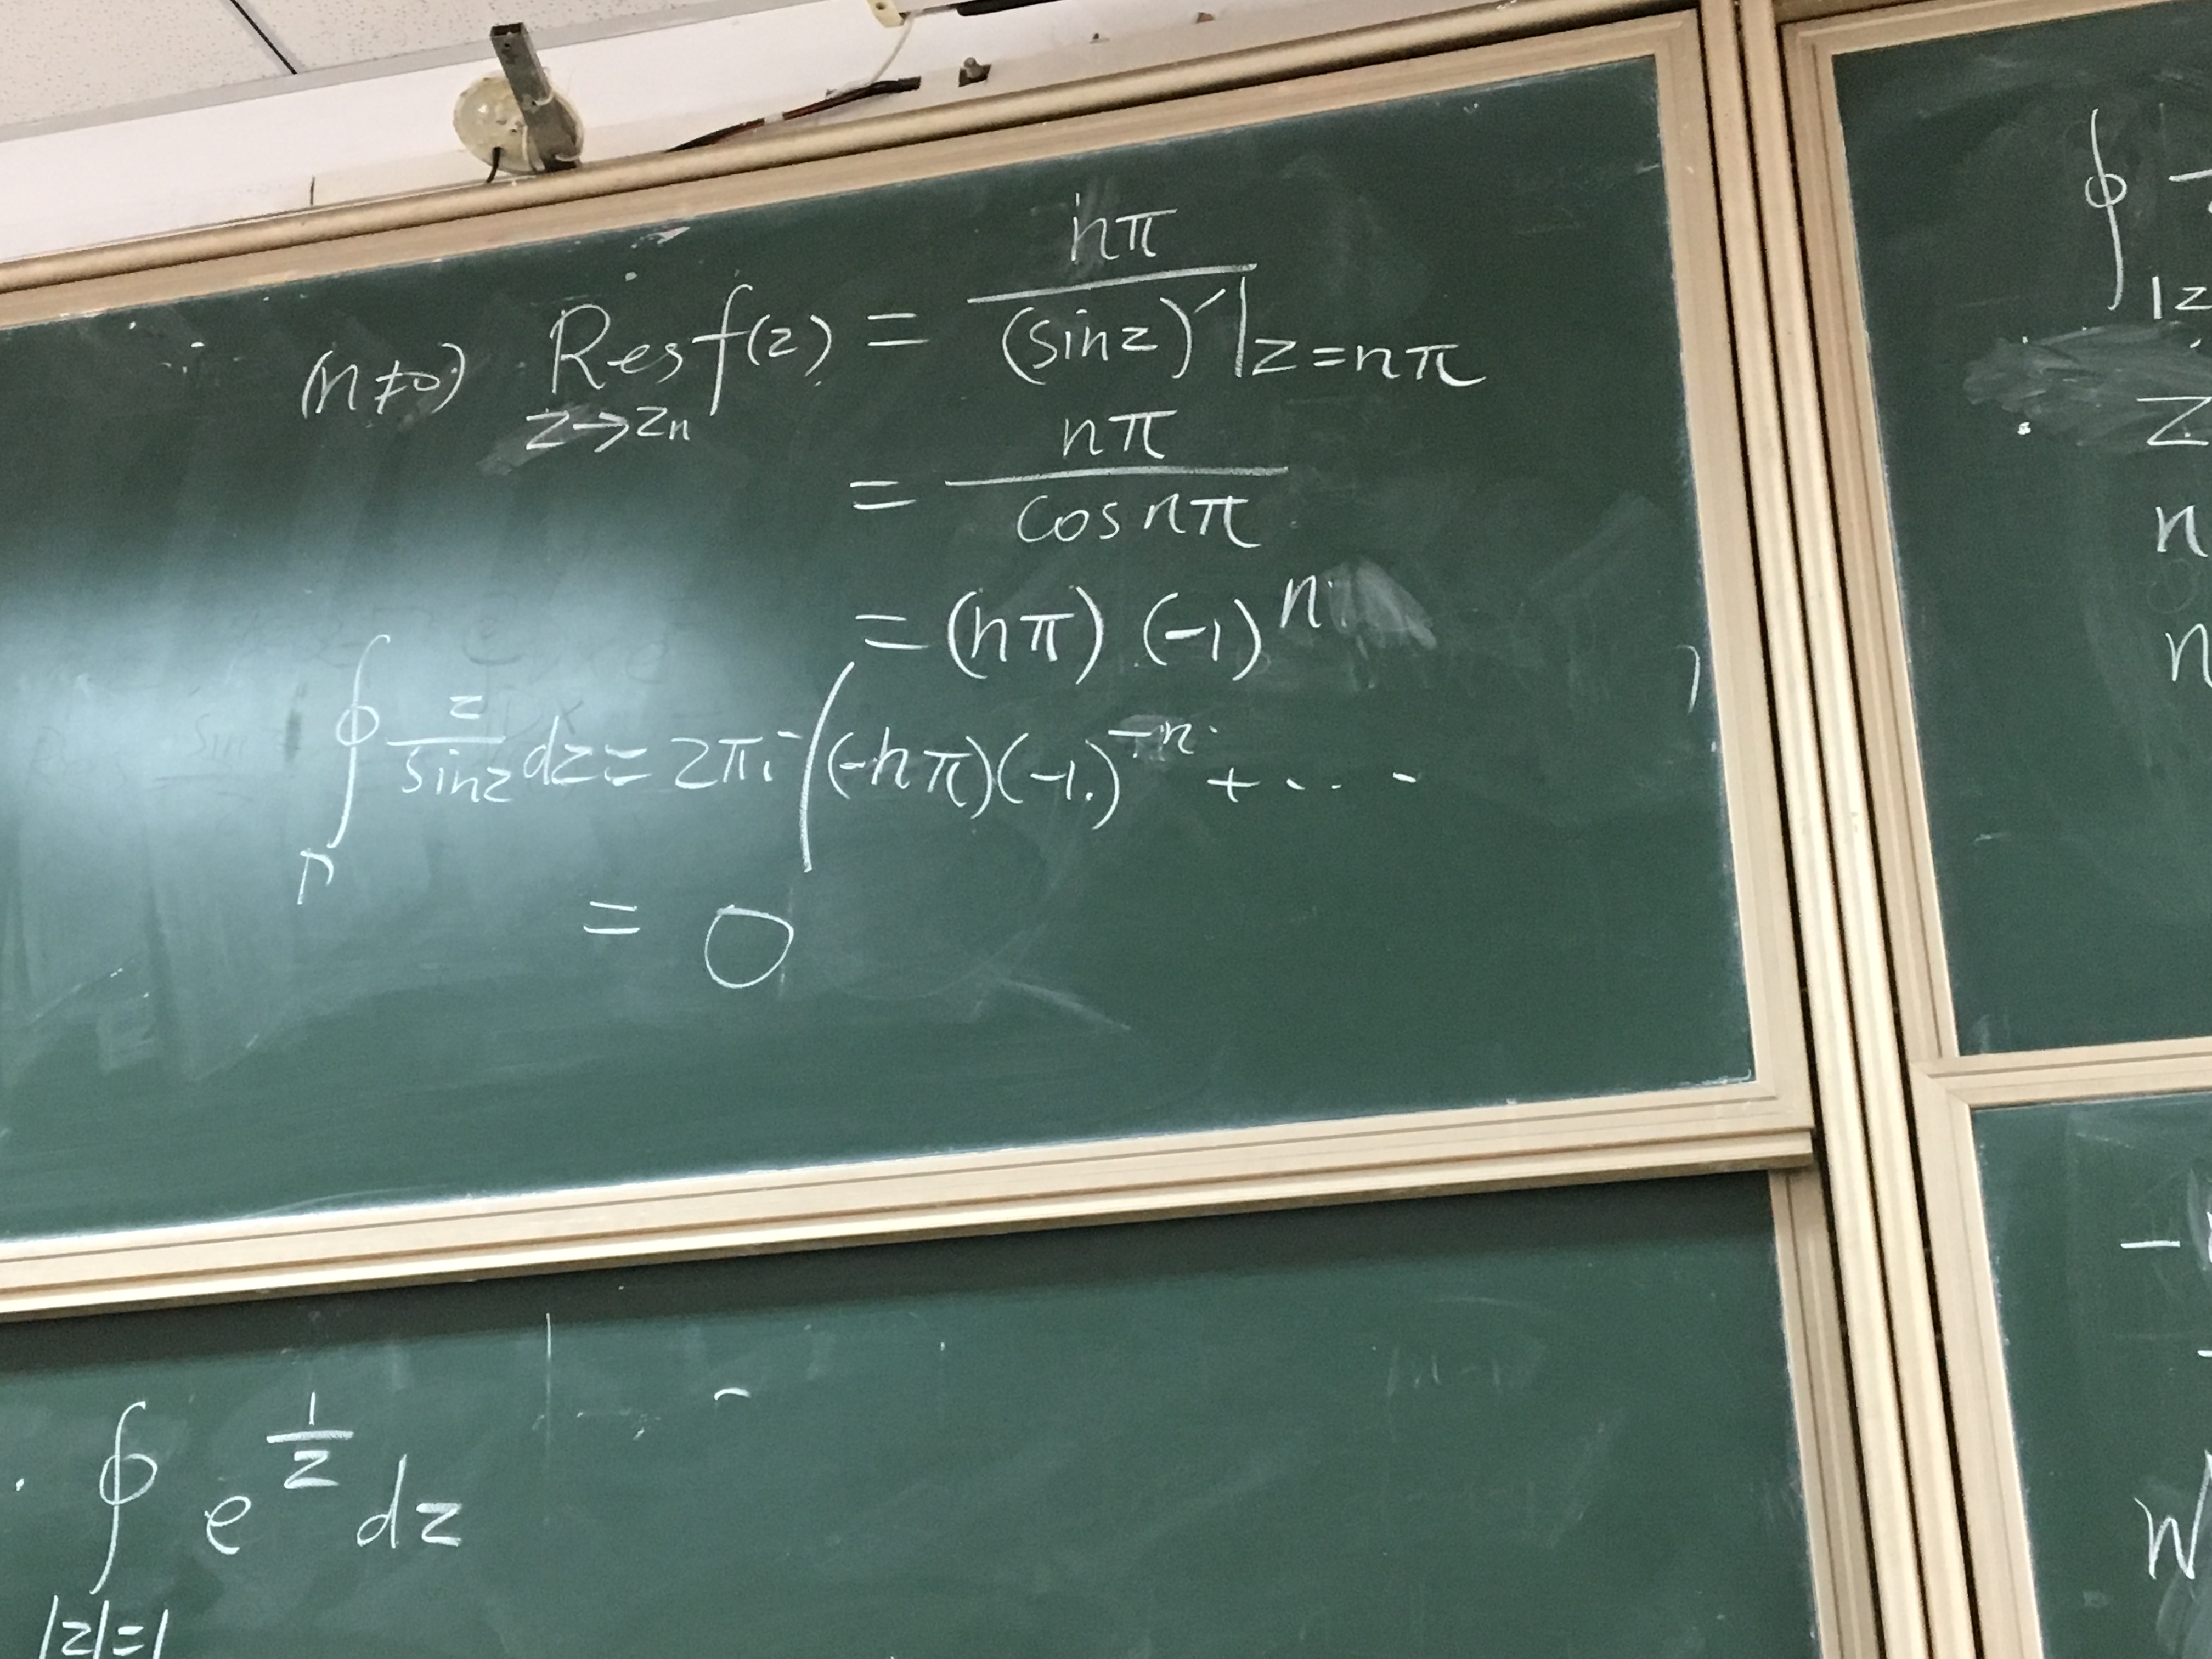 (n≠0) Res f(z) = nπ / (sin z)′|z=nπ
z→zn
= nπ / cos nπ
= (nπ) (-1)^n
∮ z / sin z dz = 2πi ( (-nπ)(-1)^-n + ...
= 0
∮ e^(1/z) dz
|z|=1
∮
|z
z
n
n
-
W